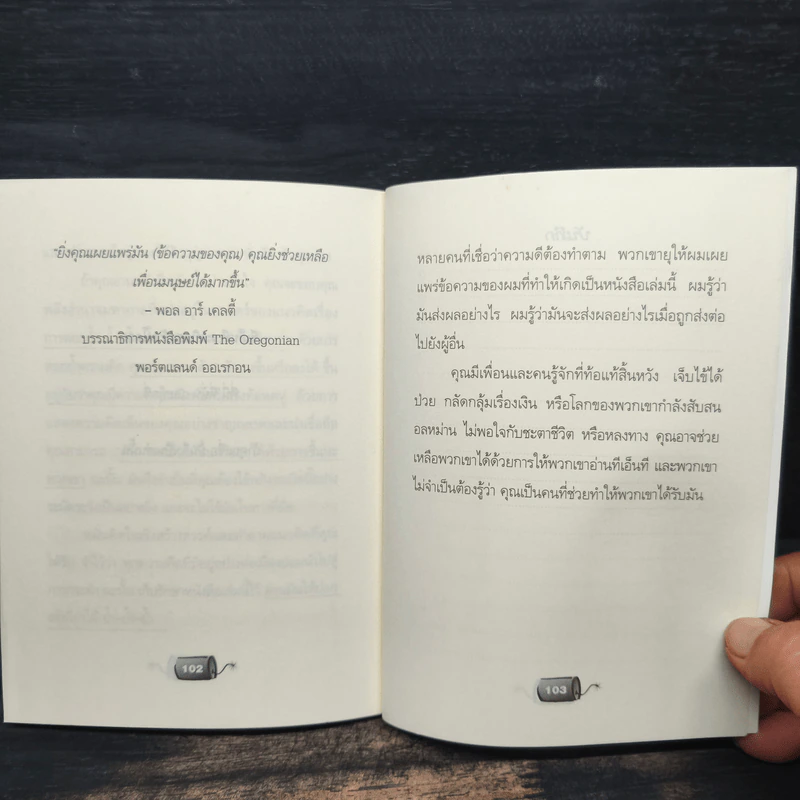 "ยิ่งคุณเผยแพร่มัน (ข้อความของคุณ) คุณยิ่งช่วยเหลือ
เพื่อนมนุษย์ได้มากขึ้น"
– พอล อาร์ เคลตี้
บรรณาธิการหนังสือพิมพ์ The Oregonian
พอร์ตแลนด์ ออเรกอน
102
หลายคนที่เชื่อว่าความดีต้องทำตาม พวกเขายุให้ผมเผย
แพร่ข้อความของผมที่ทำให้เกิดเป็นหนังสือเล่มนี้ ผมรู้ว่า
มันส่งผลอย่างไร ผมรู้ว่ามันจะส่งผลอย่างไรเมื่อถูกส่งต่อ
ไปยังผู้อื่น
คุณมีเพื่อนและคนรู้จักที่ท้อแท้สิ้นหวัง เจ็บไข้ได้
ป่วย กลัดกลุ้มเรื่องเงิน หรือโลกของพวกเขากำลังสับสน
อลหม่าน ไม่พอใจกับชะตาชีวิต หรือหลงทาง คุณอาจช่วย
เหลือพวกเขาได้ด้วยการให้พวกเขาอ่านทีเอ็นที และพวกเขา
ไม่จำเป็นต้องรู้ว่า คุณเป็นคนที่ช่วยทำให้พวกเขาได้รับมัน
103